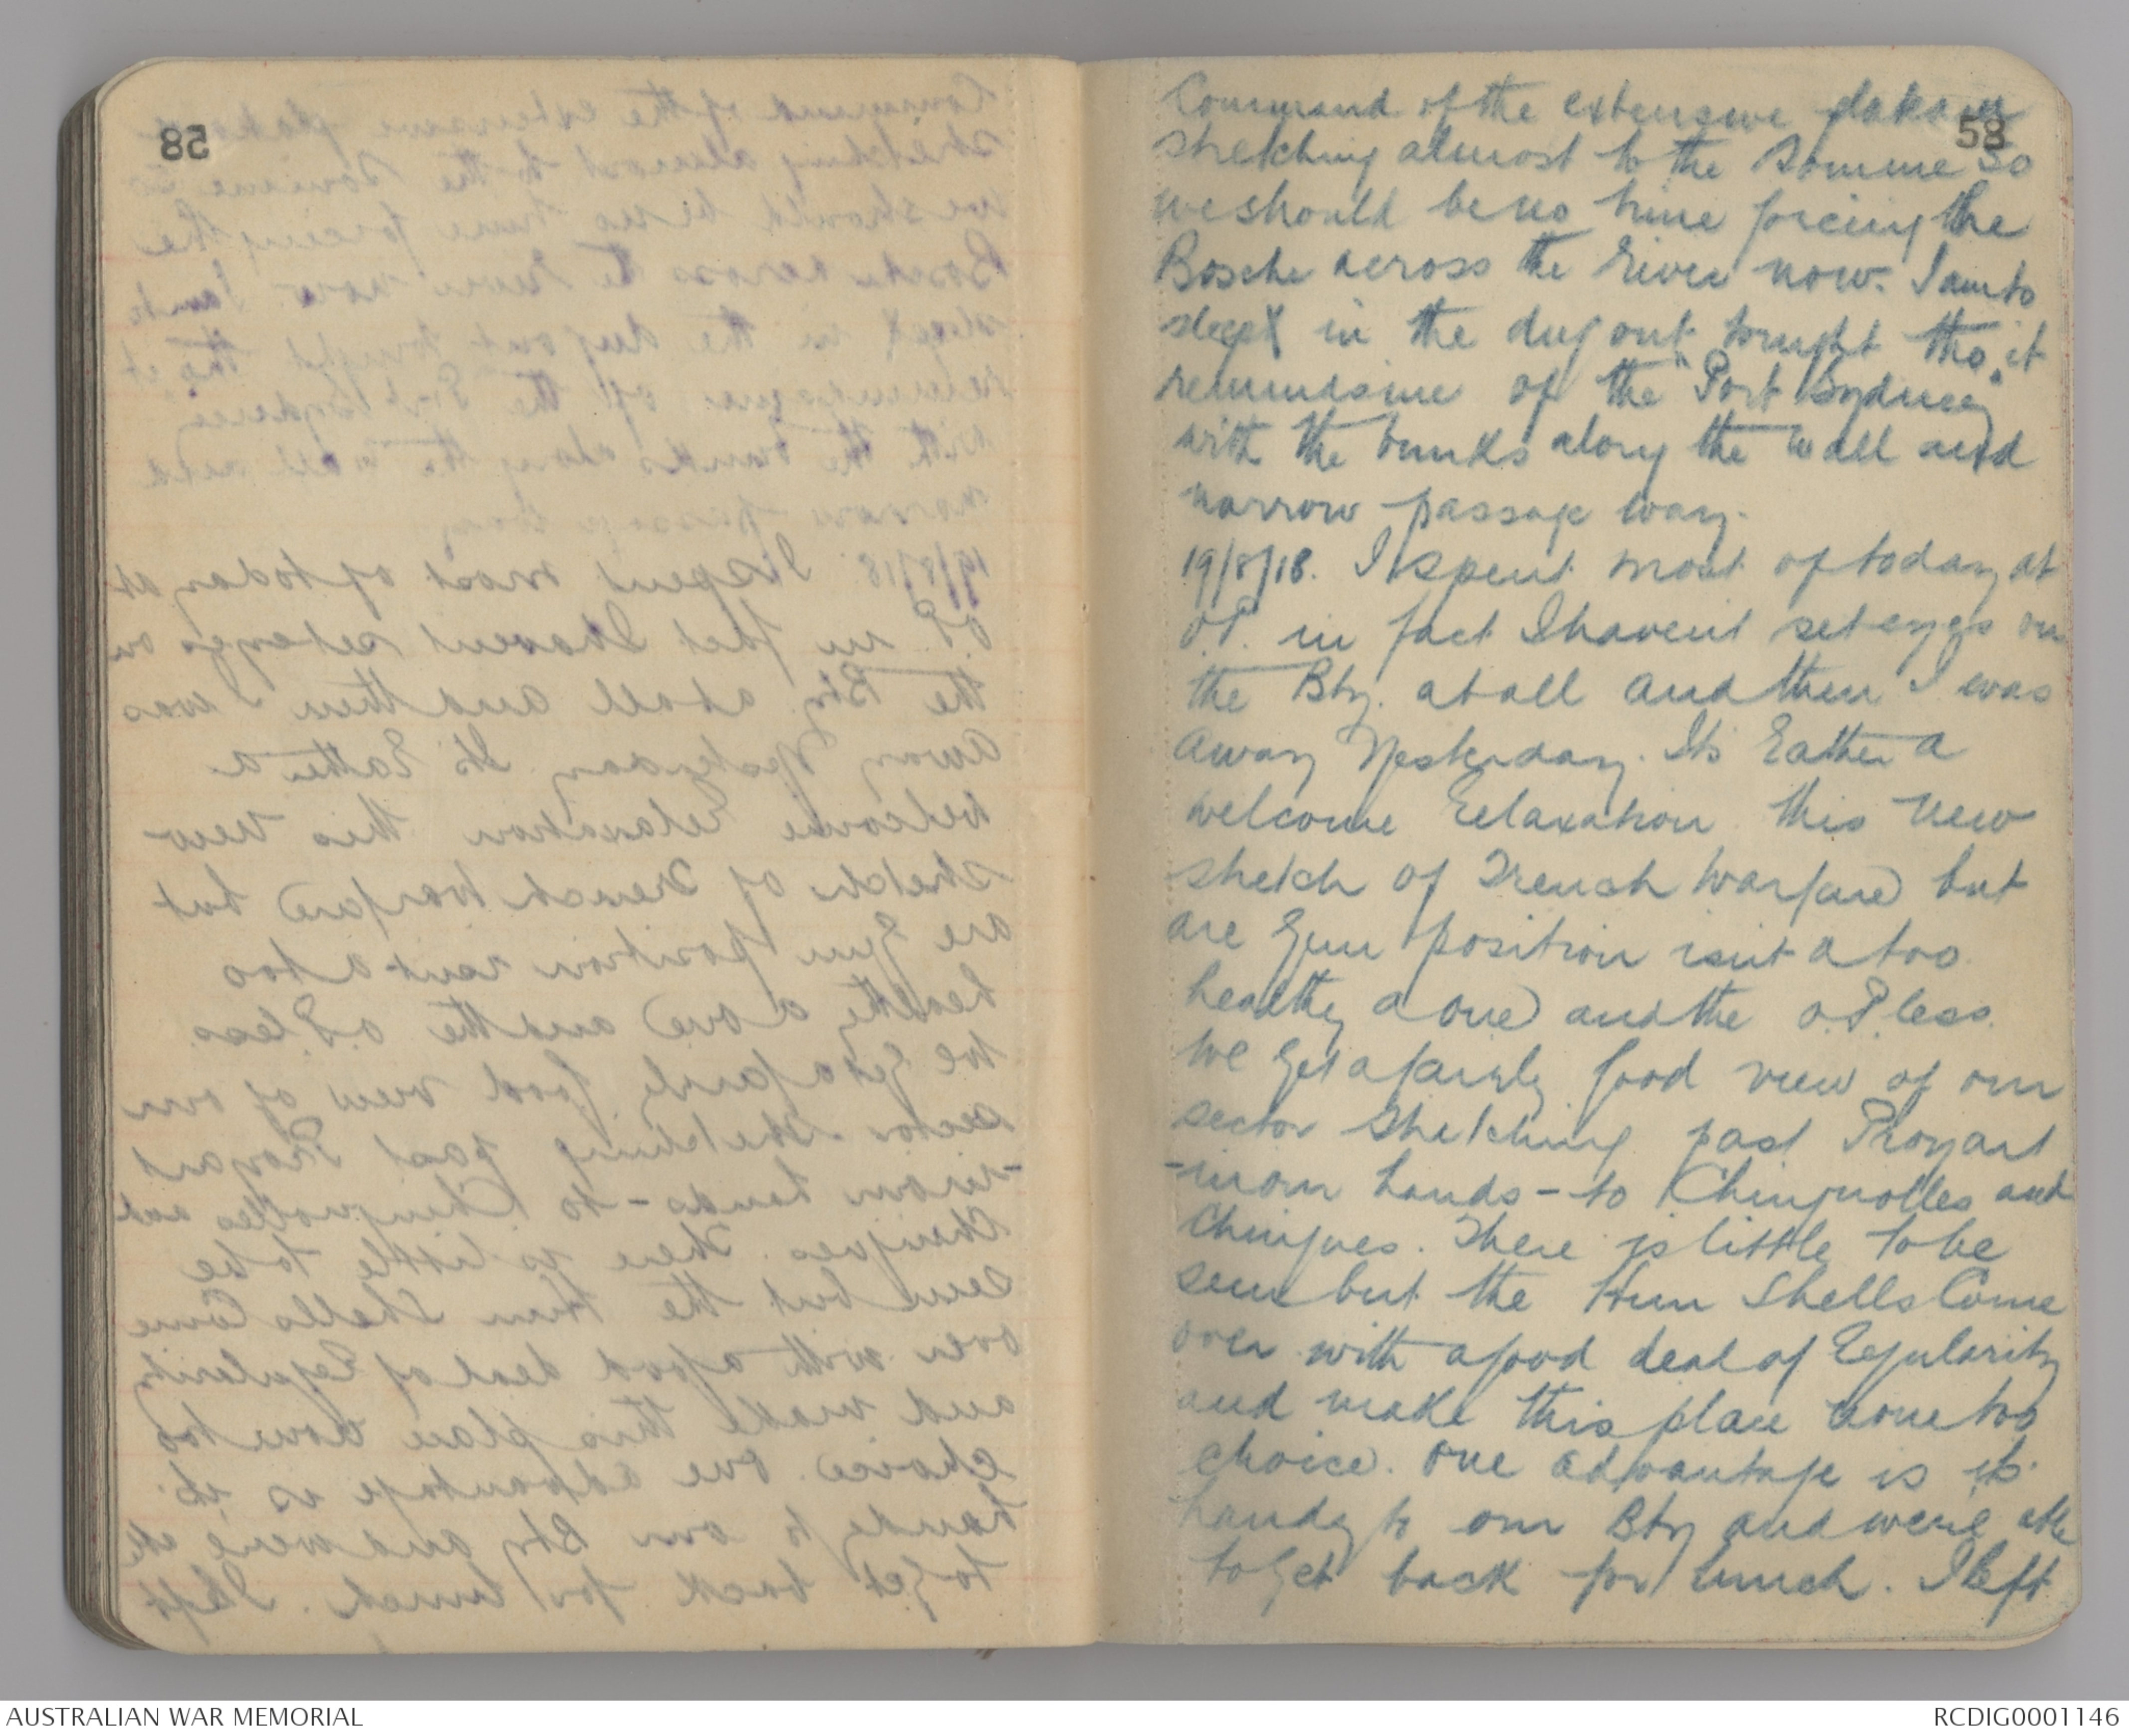 58
58
Command of the extensive plateau
stretching almost to the Somme So
we should be no time forcing the
Bosche across the River now. I am to
sleep in the dugout tonight tho it
reminds me of the "Port Sydney"
with the bunks along the wall and
narrow passage way.
19/8/18. I spent most of today at
O.P. in fact I havent set eyes on
the Bty. at all and then I was
away Yesterday. Its Rather a
welcome Relaxation this new
stretch of Trench Warfare but
are Gun position isnt a too
healthy a one and the O.P. less.
We Get a fairly good view of our
sector stretching past Proyart
-in our hands - to Chuignolles and
Chuignes. There is little to be
seen but the Hun Shells Come
over with a good deal of Regularity
and make this place none too
choice. One advantage is its
handy to our Bty and were able
to Get back for lunch. I left
AUSTRALIAN WAR MEMORIAL
RCDIG0001146